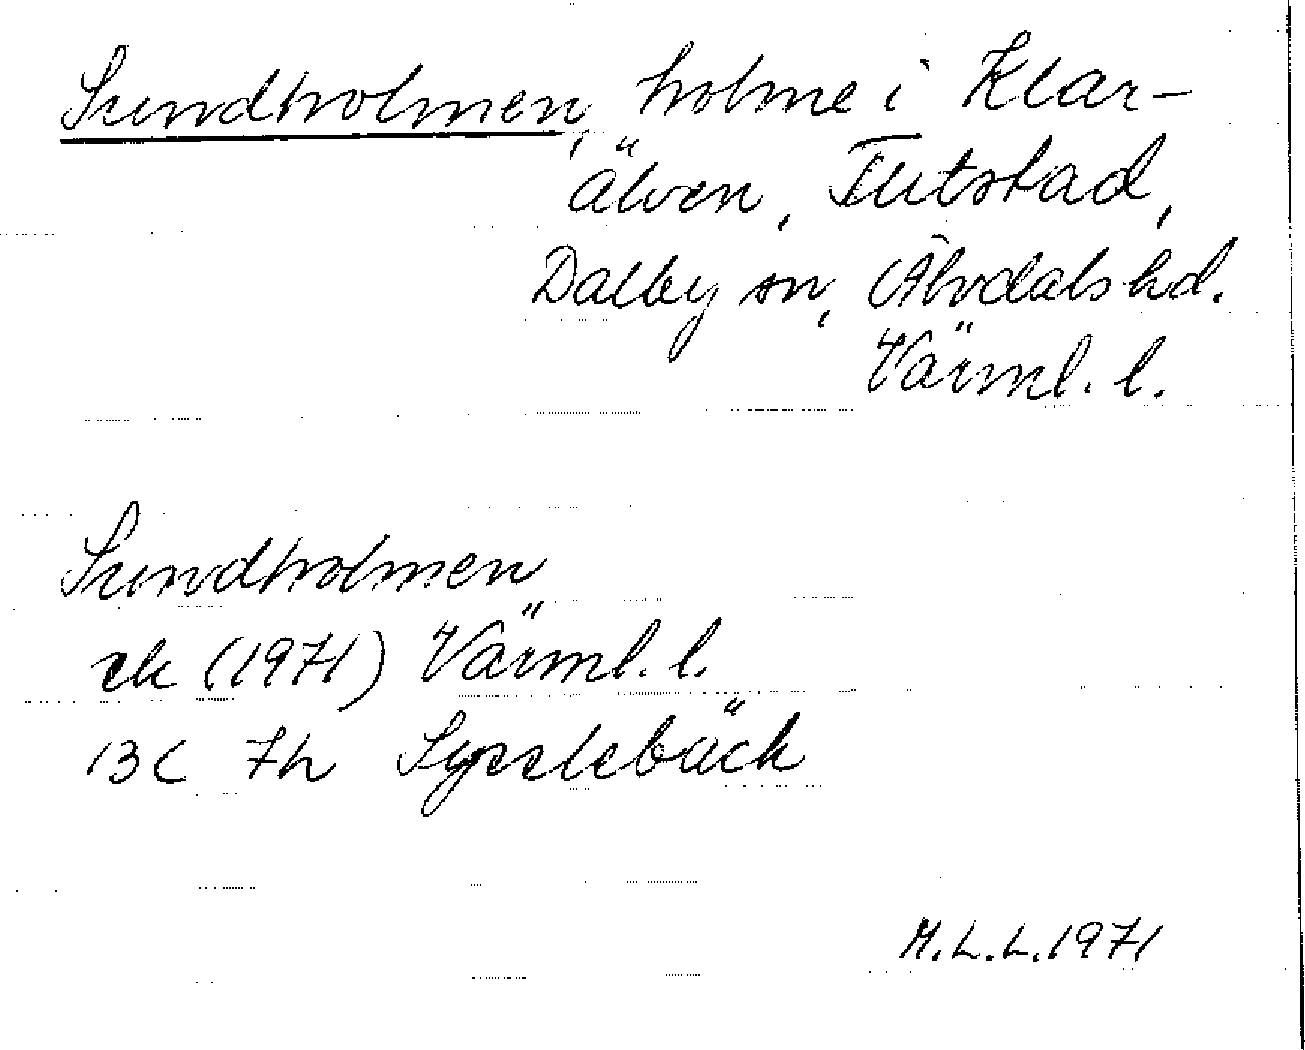 Sundholmen, holme i Klar-
älven, Tutstad,
Dalby sn, Älvdals hd.
Värml. l.
Sundholmen
ek (1971) Värml. l.
13C 7h Sysslebäck
M.L.L. 1971